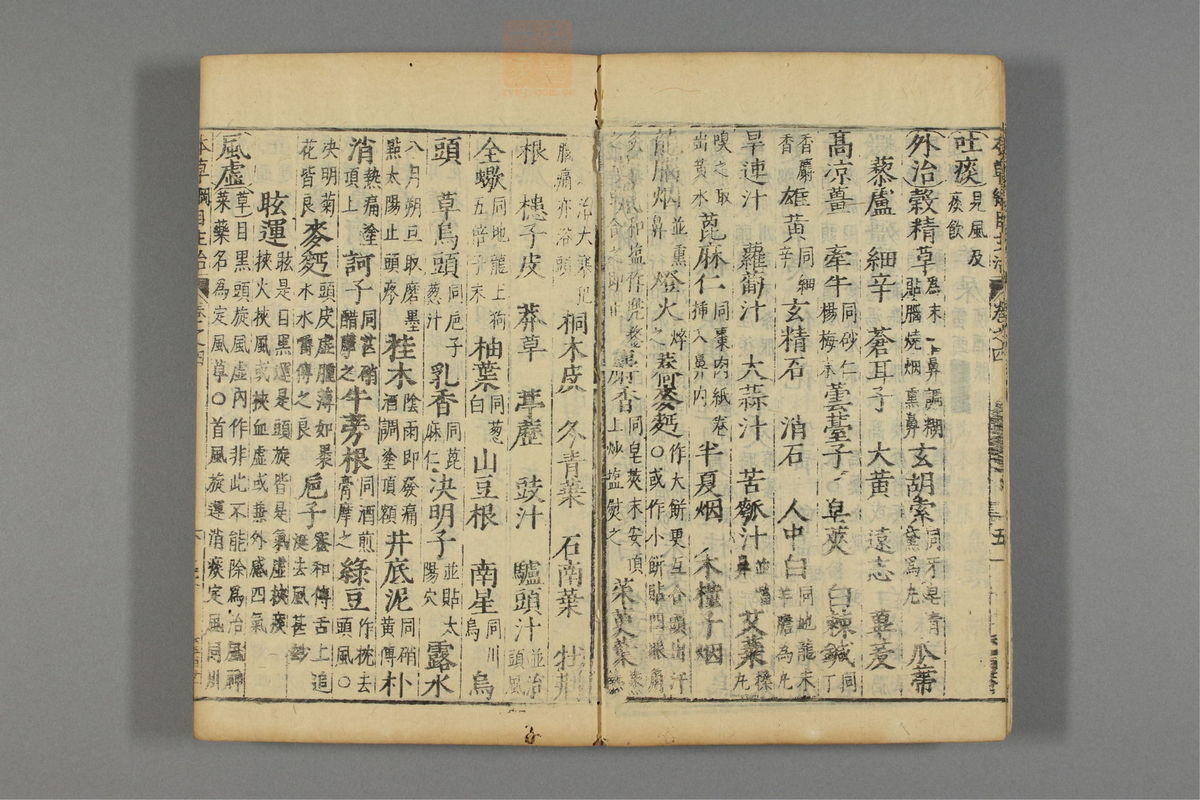 吐痰 見風及痰飲
外治 穀精草 為末㗜鼻調糊貼腦燒烟熏鼻 玄胡索 同牙皂青黛為丸 瓜蒂
藜蘆 細辛 蒼耳子 大黃 遠志 蓽茇
高涼薑 牽牛 同砂仁楊梅末 蕓薹子 皂莢 白棘鍼 同丁
香麝 雄黃 同細辛 玄精石 消石 人中白 同地龍末羊膽為丸
旱蓮汁 蘿蔔汁 大蒜汁 苦瓠汁 並㗜鼻 艾葉 揉丸
嗅之取出黃水 蓖麻仁 同棗肉紙卷插入鼻內 半夏烟 木槿子烟
龍腦烟 並熏鼻 燈火 焠之 蕎麥麪 作大餅更互合頭出汗〇或作小餅貼四眼角
麝香 同皂莢末安頂上炒塩熨之 茱萸葉
治大寒犯腦痛亦浴頭 桐木皮 冬青葉 石南葉 牡荊
根 槵子皮 莽草 葶藶 豉汁 驢頭汁 並治頭風
全蠍 同地龍土狗五倍子末 柚葉 同葱白 山豆根 南星 同川烏 烏
頭 草烏頭 同巵子葱汁 乳香 同蓖麻仁 決明子 並貼太陽穴 露水
八月朔旦取磨墨點太陽止頭疼 桂木 陰雨即發痛酒調塗頂額 井底泥 同硝黃傅 朴
消 熱痛塗頂上 訶子 同芒硝醋摩之 牛蒡根 同酒煎膏摩之 綠豆 作枕去頭風〇
決明菊花皆良 麥麪 頭皮虛腫薄如裹水水嚼傅之良 巵子 蜜和傅舌上追涎去風甚妙
眩運 眩是目黑運是頭旋皆是氣虛挾痰挾火挾風或挾血虛或兼外感四氣
風虛 草葉名為定風草〇首風旋運消痰定風同別